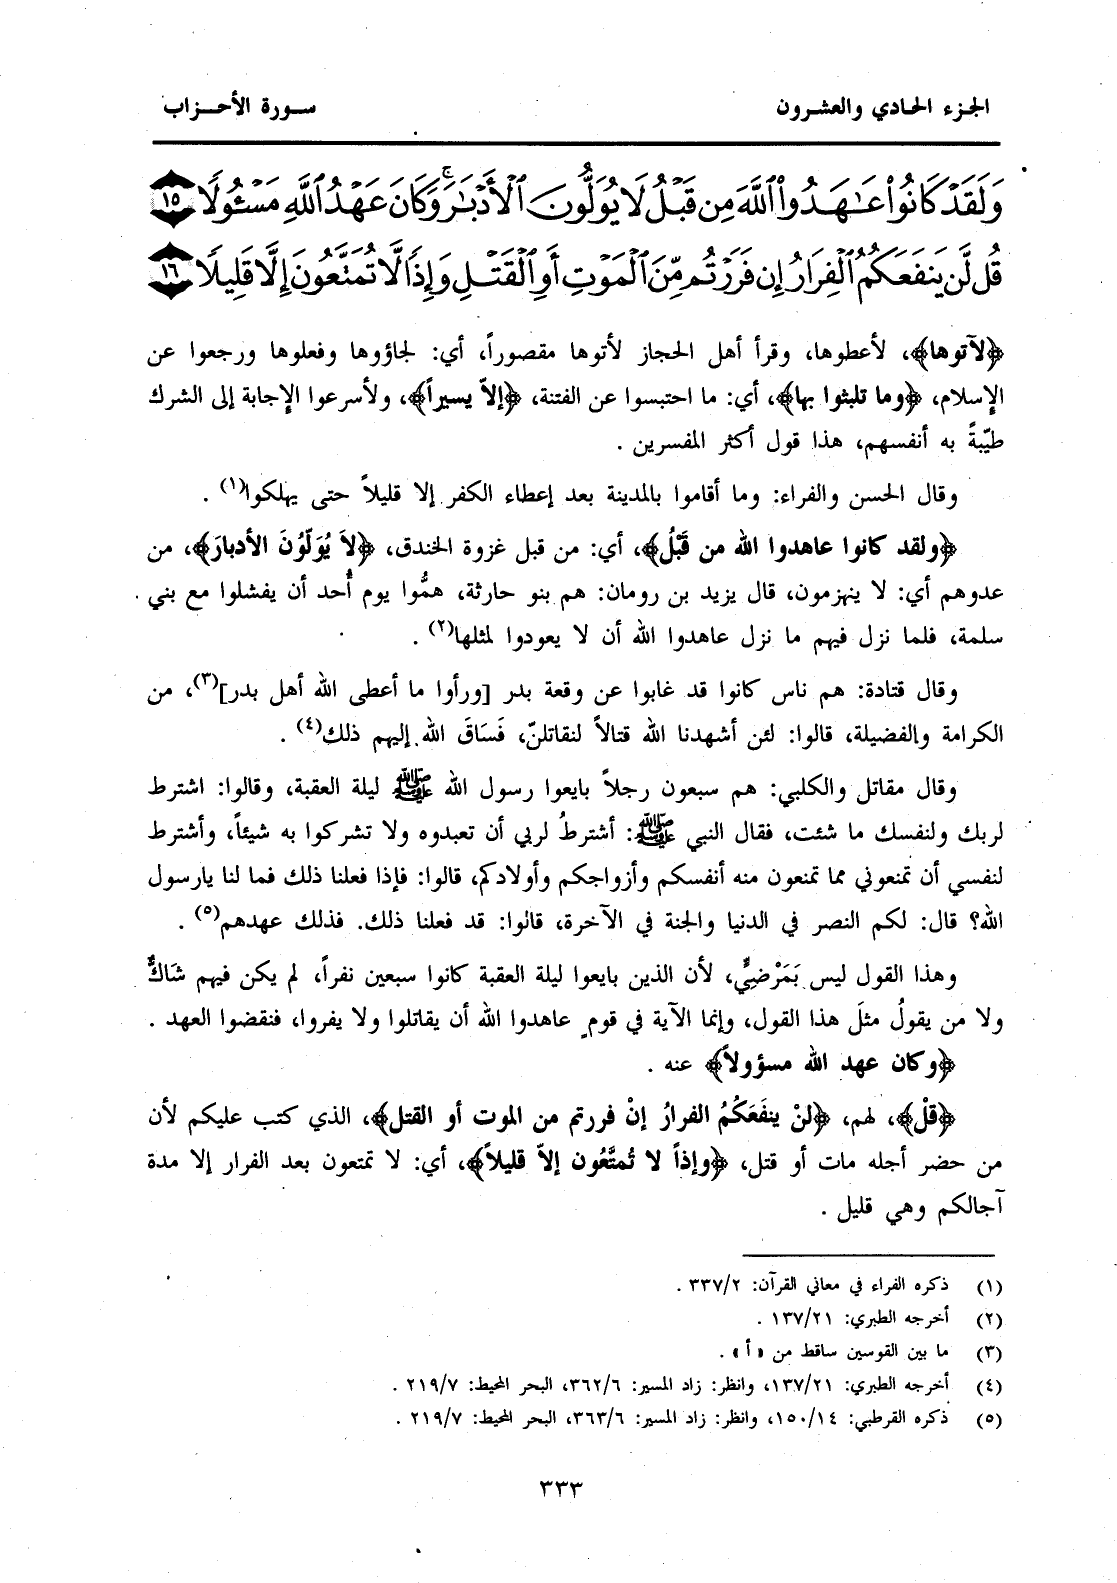 الجزء الحادي والعشرون
سورة الأحزاب
وَلَقَدْ كَانُوا۟ عَـٰهَدُوا۟ ٱللَّهَ مِن قَبْلُ لَا يُوَلُّونَ ٱلْأَدْبَـٰرَ ۚ وَكَانَ عَهْدُ ٱللَّهِ مَسْـُٔولًا ١٥
قُل لَّن يَنفَعَكُمُ ٱلْفِرَارُ إِن فَرَرْتُم مِّنَ ٱلْمَوْتِ أَوِ ٱلْقَتْلِ وَإِذًا لَّا تُمَتَّعُونَ إِلَّا قَلِيلًا ١٦
﴿لآتوها﴾، لأعطوها، وقرأ أهل الحجاز لأتوها مقصوراً، أي: لجاؤوها وفعلوها ورجعوا عن
الإسلام، ﴿وما تلبثوا بها﴾، أي: ما احتبسوا عن الفتنة، ﴿إلاّ يسيراً﴾، ولأسرعوا الإجابة إلى الشرك
طيّبةً به أنفسهم، هذا قول أكثر المفسرين .
وقال الحسن والفراء: وما أقاموا بالمدينة بعد إعطاء الكفر إلا قليلاً حتى يهلكوا(١) .
﴿ولقد كانوا عاهدوا الله من قَبْلُ﴾، أي: من قبل غزوة الخندق، ﴿لاَ يُوَلّوُنَ الأدبارَ﴾، من
عدوهم أي: لا ينهزمون، قال يزيد بن رومان: هم بنو حارثة، همُّوا يوم أُحد أن يفشلوا مع بني
سلمة، فلما نزل فيهم ما نزل عاهدوا الله أن لا يعودوا لمثلها(٢) .
وقال قتادة: هم ناس كانوا قد غابوا عن وقعة بدر [ورأوا ما أعطى الله أهل بدر](٣)، من
الكرامة والفضيلة، قالوا: لئن أشهدنا الله قتالاً لنقاتلنّ، فَسَاقَ الله إليهم ذلك(٤) .
وقال مقاتل والكلبي: هم سبعون رجلاً بايعوا رسول الله ﷺ ليلة العقبة، وقالوا: اشترط
لربك ولنفسك ما شئت، فقال النبي ﷺ: أشترطُ لربي أن تعبدوه ولا تشركوا به شيئاً، وأشترط
لنفسي أن تمنعوني مما تمنعون منه أنفسكم وأزواجكم وأولادكم، قالوا: فإذا فعلنا ذلك فما لنا يارسول
الله؟ قال: لكم النصر في الدنيا والجنة في الآخرة، قالوا: قد فعلنا ذلك. فذلك عهدهم(٥) .
وهذا القول ليس بَمَرْضِيٍّ، لأن الذين بايعوا ليلة العقبة كانوا سبعين نفراً، لم يكن فيهم شَاكٌّ
ولا من يقولُ مثلَ هذا القول، وإنما الآية في قومٍ عاهدوا الله أن يقاتلوا ولا يفروا، فنقضوا العهد .
﴿وكان عهد الله مسؤولاً﴾ عنه .
﴿قلْ﴾، لهم، ﴿لنْ ينفَعَكُمُ الفرارُ إنْ فررتم من الموت أو القتل﴾، الذي كتب عليكم لأن
من حضر أجله مات أو قتل، ﴿وإذاً لا تُمتَّعُون إلاّ قليلاً﴾، أي: لا تمتعون بعد الفرار إلا مدة
آجالكم وهي قليل .
(١) ذكره الفراء في معاني القرآن: ٣٣٧/٢ .
(٢) أخرجه الطبري: ١٣٧/٢١ .
(٣) ما بين القوسين ساقط من «أ» .
(٤) أخرجه الطبري: ١٣٧/٢١، وانظر: زاد المسير: ٣٦٢/٦، البحر المحيط: ٢١٩/٧ .
(٥) ذكره القرطبي: ١٥٠/١٤، وانظر: زاد المسير: ٣٦٣/٦، البحر المحيط: ٢١٩/٧ .
٣٣٣